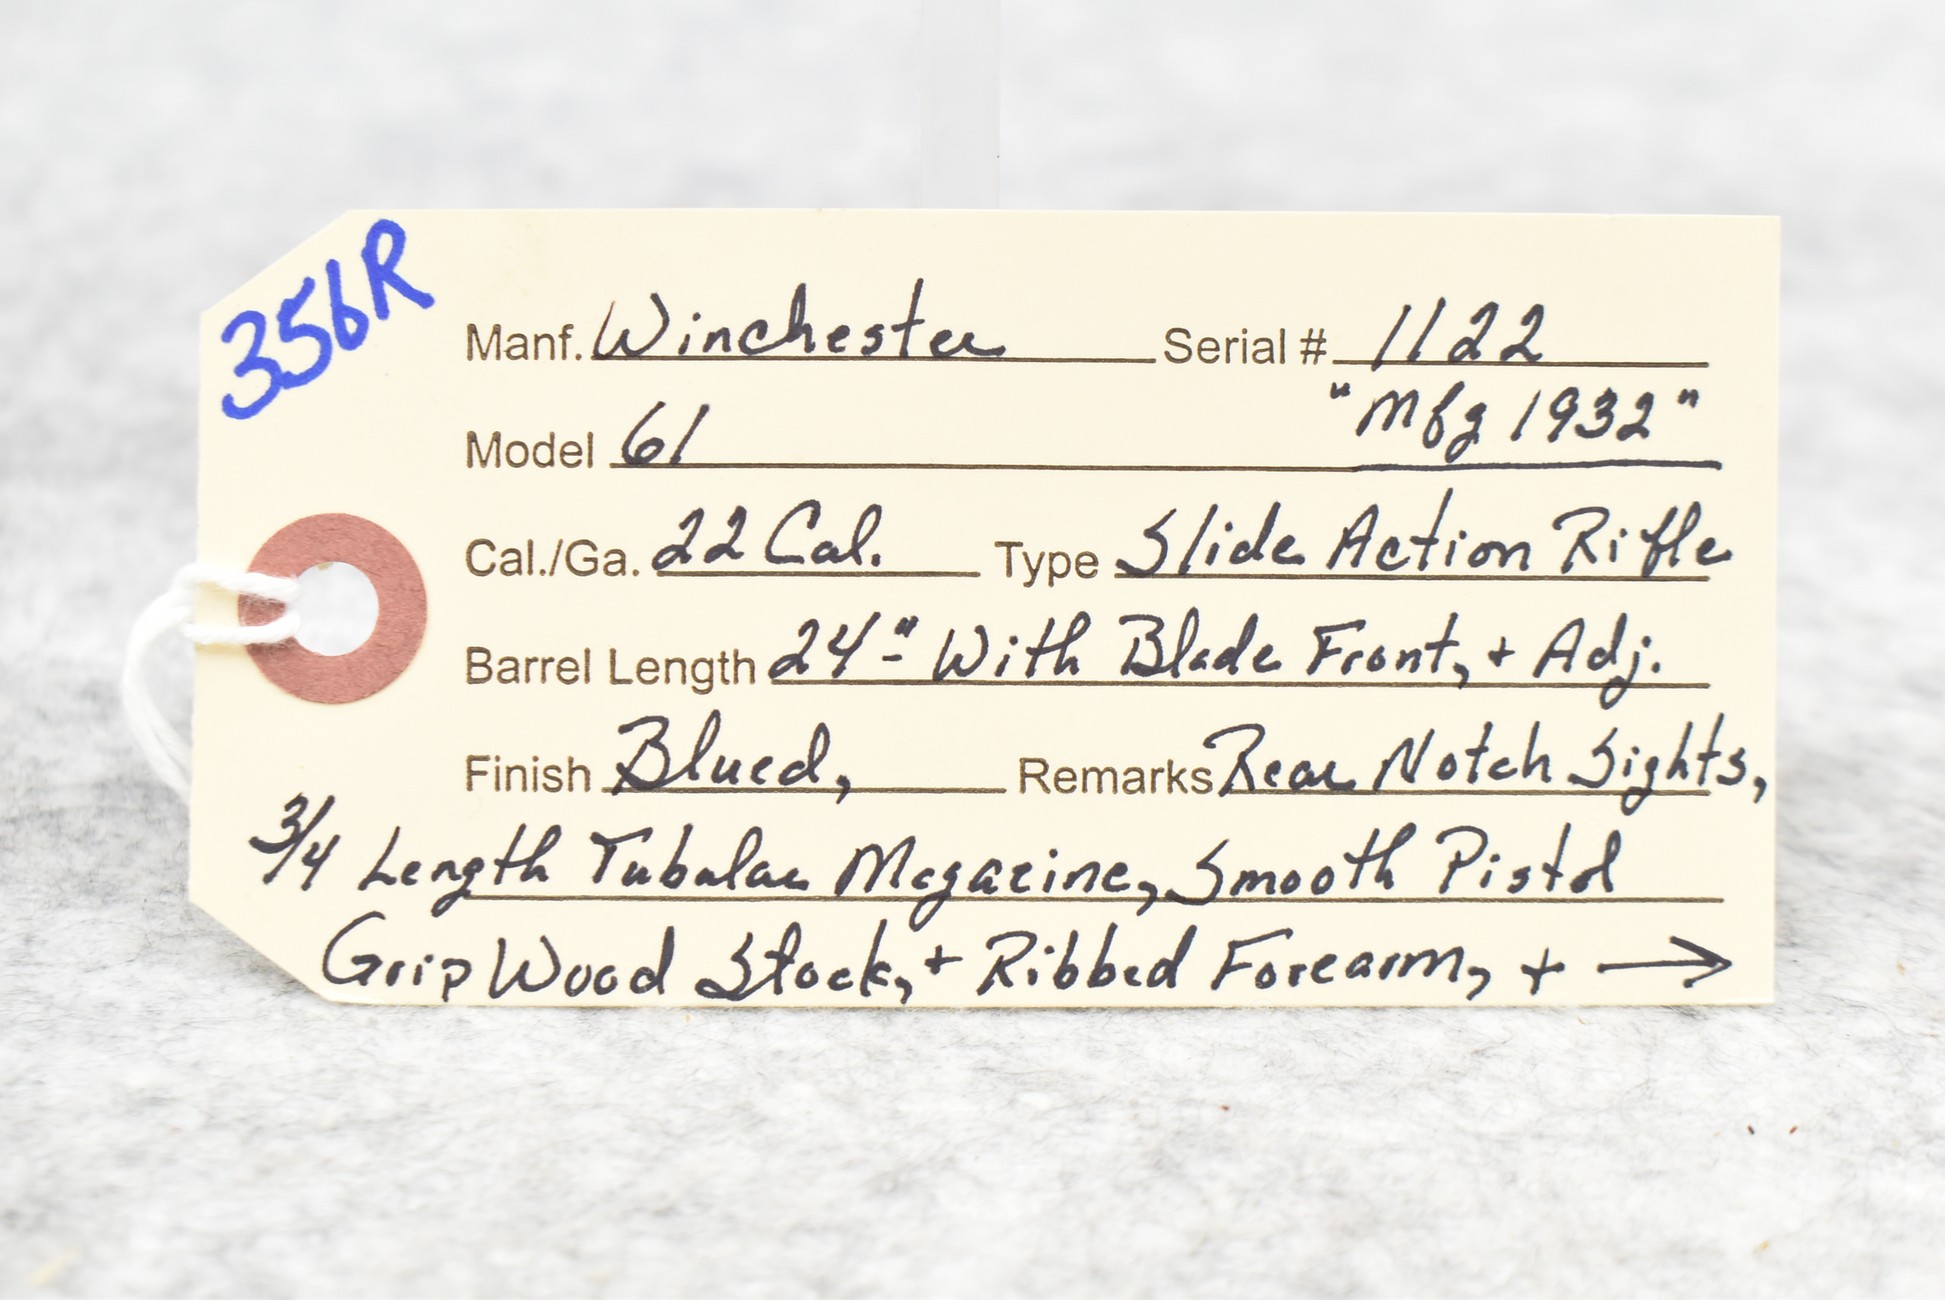 356R
Manf. Winchester Serial # 1122
Model 61 "Mfg 1932"
Cal./Ga. 22 Cal. Type Slide Action Rifle
Barrel Length 24"- With Blade Front, + Adj.
Finish Blued, Remarks Rear Notch Sights,
3/4 Length Tubular Magazine, Smooth Pistol
Grip Wood Stock, + Ribbed Forearm, + →